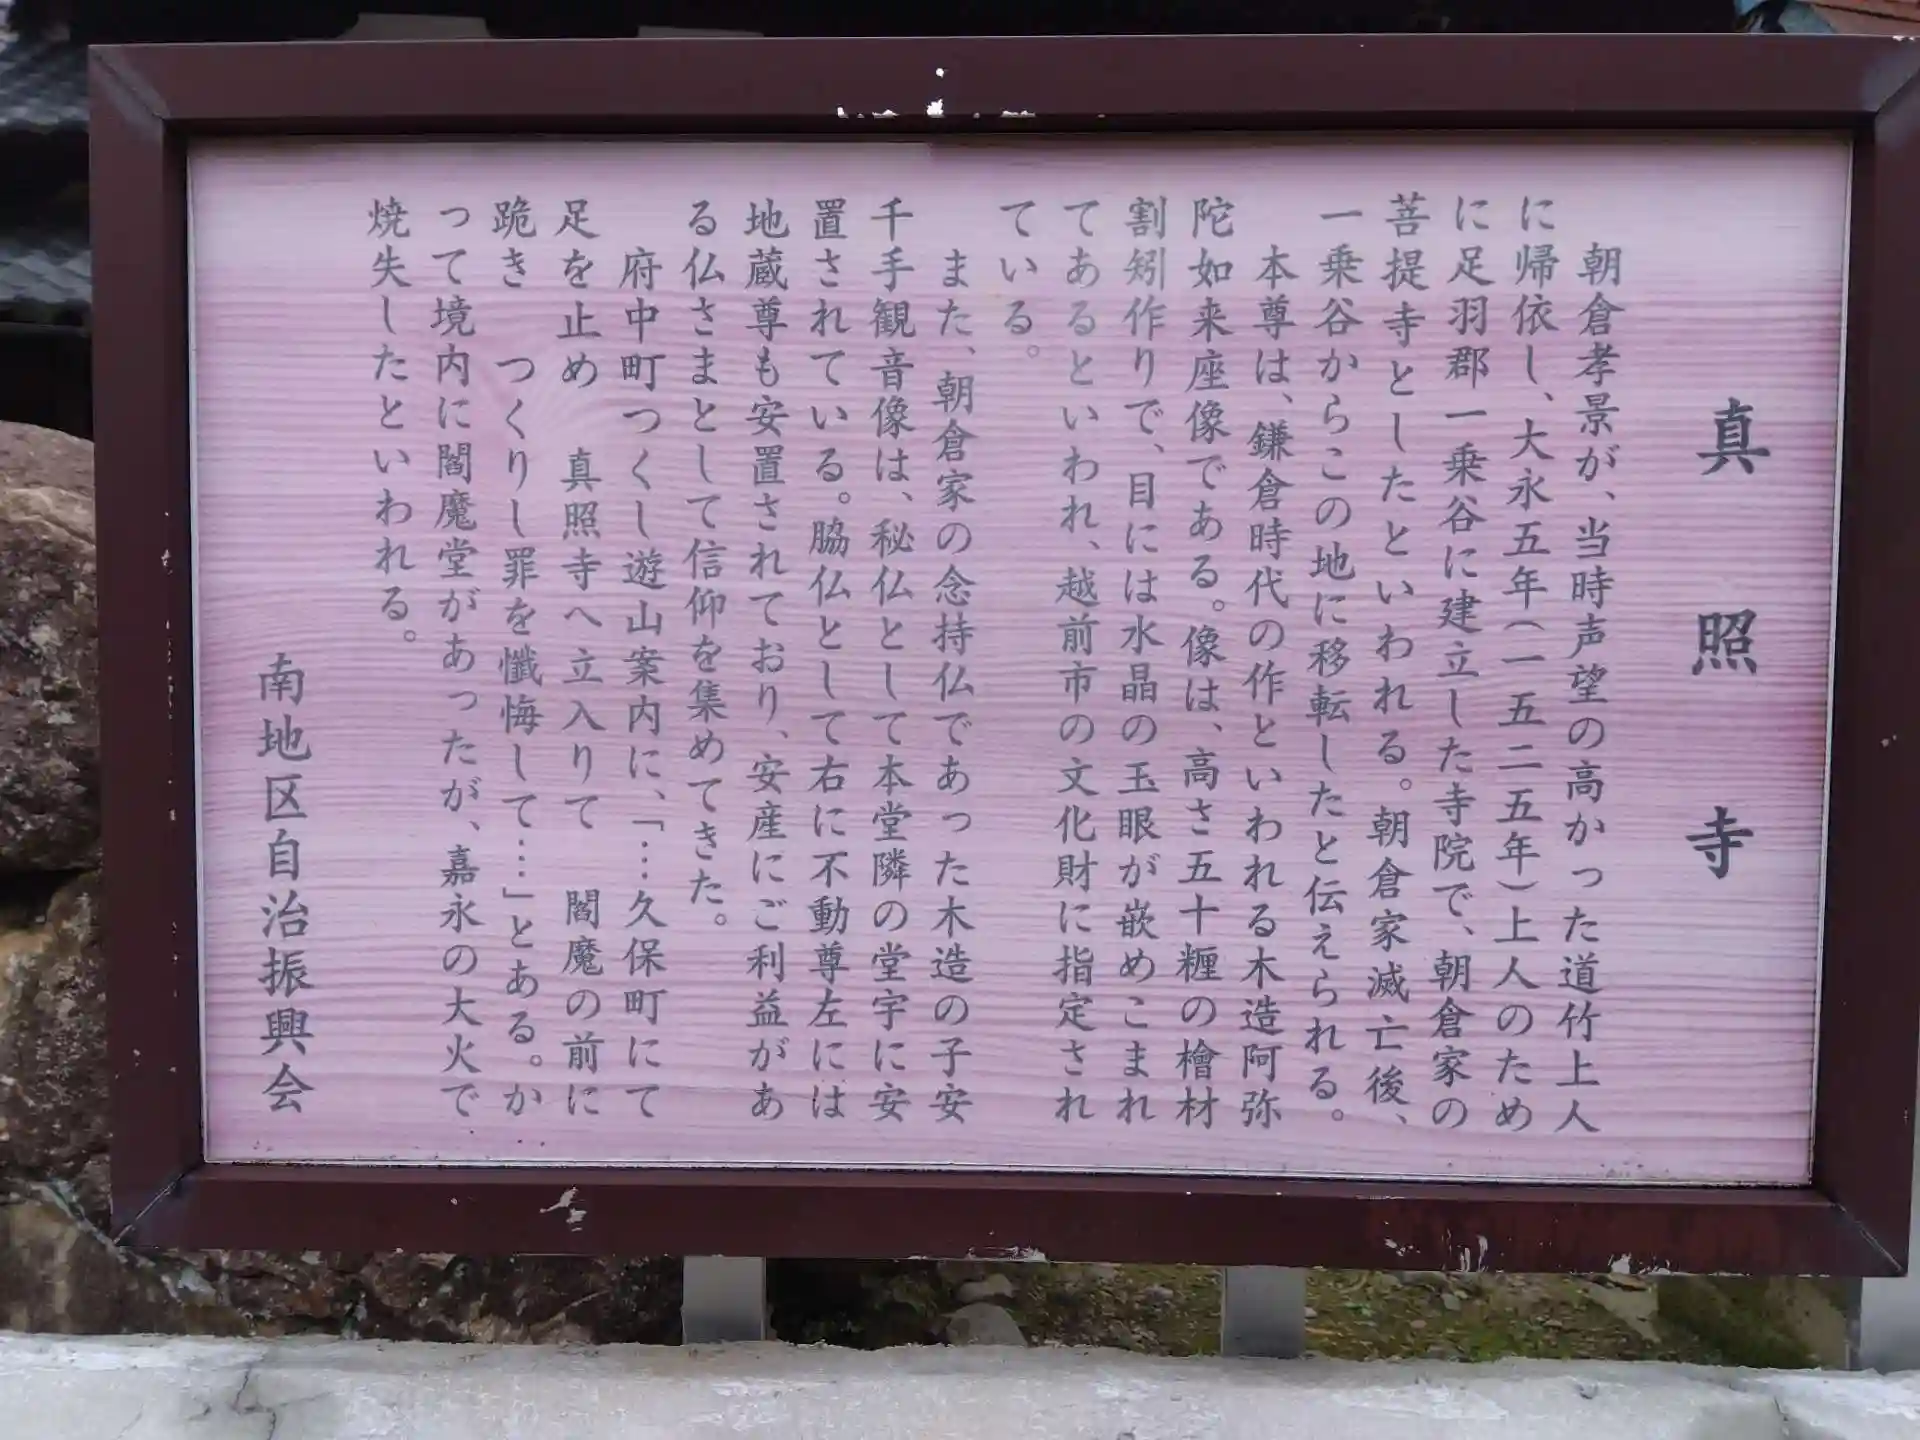 真照寺
朝倉孝景が、当時声望の高かった道竹上人
に帰依し、大永五年(一五二五年)上人のため
に足羽郡一乗谷に建立した寺院で、朝倉家の
菩提寺としたといわれる。朝倉家滅亡後、
一乗谷からこの地に移転したと伝えられる。
本尊は、鎌倉時代の作といわれる木造阿弥
陀如来座像である。像は、高さ五十糎の檜材
割矧作りで、目には水晶の玉眼が嵌めこまれ
てあるといわれ、越前市の文化財に指定され
ている。
また、朝倉家の念持仏であった木造の子安
千手観音像は、秘仏として本堂隣の堂宇に安
置されている。脇仏として右に不動尊左には
地蔵尊も安置されており、安産にご利益があ
る仏さまとして信仰を集めてきた。
府中町つくし遊山案内に、「…久保町にて
足を止め 真照寺へ立入りて 閻魔の前に
跪き つくりし罪を懺悔して…」とある。か
って境内に閻魔堂があったが、嘉永の大火で
焼失したといわれる。
南地区自治振興会